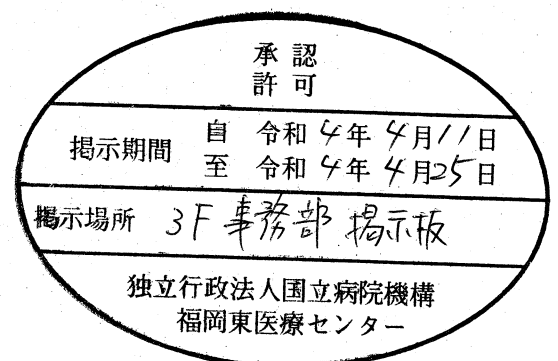 承認
許可
掲示期間
自 令和 4年 4月11日
至 令和 4年 4月25日
掲示場所 3F 事務部 掲示板
独立行政法人国立病院機構
福岡東医療センター